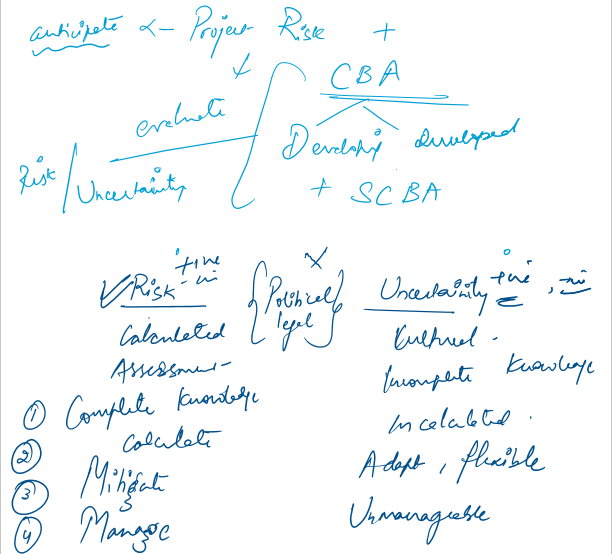 anticipate α- Project Risk +
CBA
evaluate
Developing Developed
Risk / Uncertainty
+ SCBA
+ive
-ive
Risk
{Political legal}
Uncertainty +ive, -ive
Calculated
Cultural.
Assessment
Incomplete Knowledge
① Complete Knowledge
Incalculated.
② Calculate
Adapt, flexible
③ Mitigate
Unmanageable
④ Manage